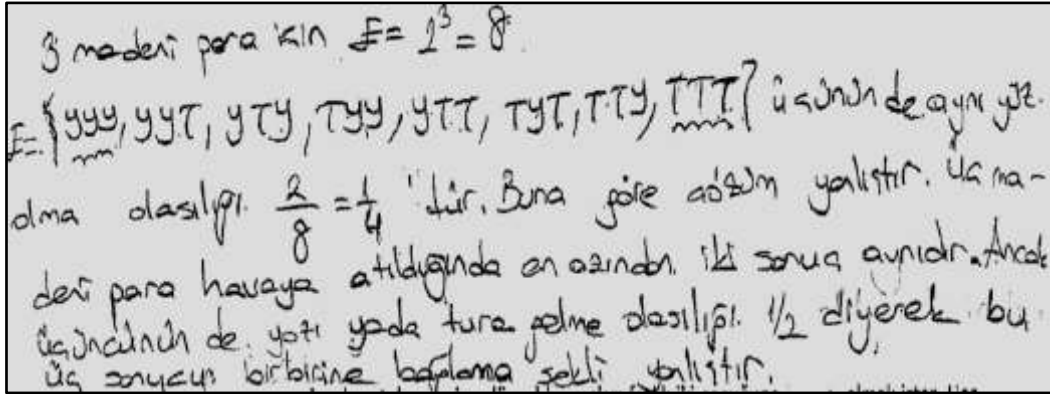 3 madeni para için E = 2³ = 8.
E = {YYY, YYT, YTY, TYY, YTT, TYT, TTY, TTT} üçünün de aynı yüz
olma olasılığı 2/8 = 1/4 'tür. Buna göre çözüm yanlıştır. Üç ma-
deni para havaya atıldığında en azından iki sonuç aynıdır. Ancak
üçüncünün de yazı yada tura gelme olasılığı 1/2 diyerek bu
üç sonucu birbirine bağlama şekli yanlıştır.